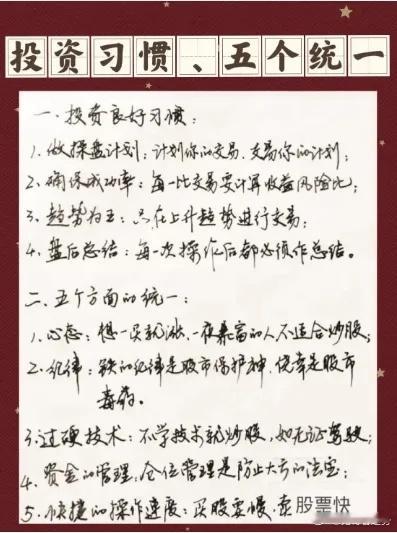 投资习惯、五个统一
一、投资良好习惯：
1、做操盘计划：计划你的交易，交易你的计划；
2、确保成功率：每一比交易要计算收益风险比；
3、趋势为王：只在上升趋势进行交易；
4、盘后总结：每一次操作后都必须作总结。
二、五个方面的统一：
1、心态：想一买就涨、一夜暴富的人不适合炒股；
2、纪律：铁的纪律是股市保护神，侥幸是股市
毒药。
3、过硬技术：不学技术就炒股，如无证驾驶；
4、资金的管理，仓位管理是防止大亏的法宝；
5、快捷的操作速度：买股要慢，卖股票快